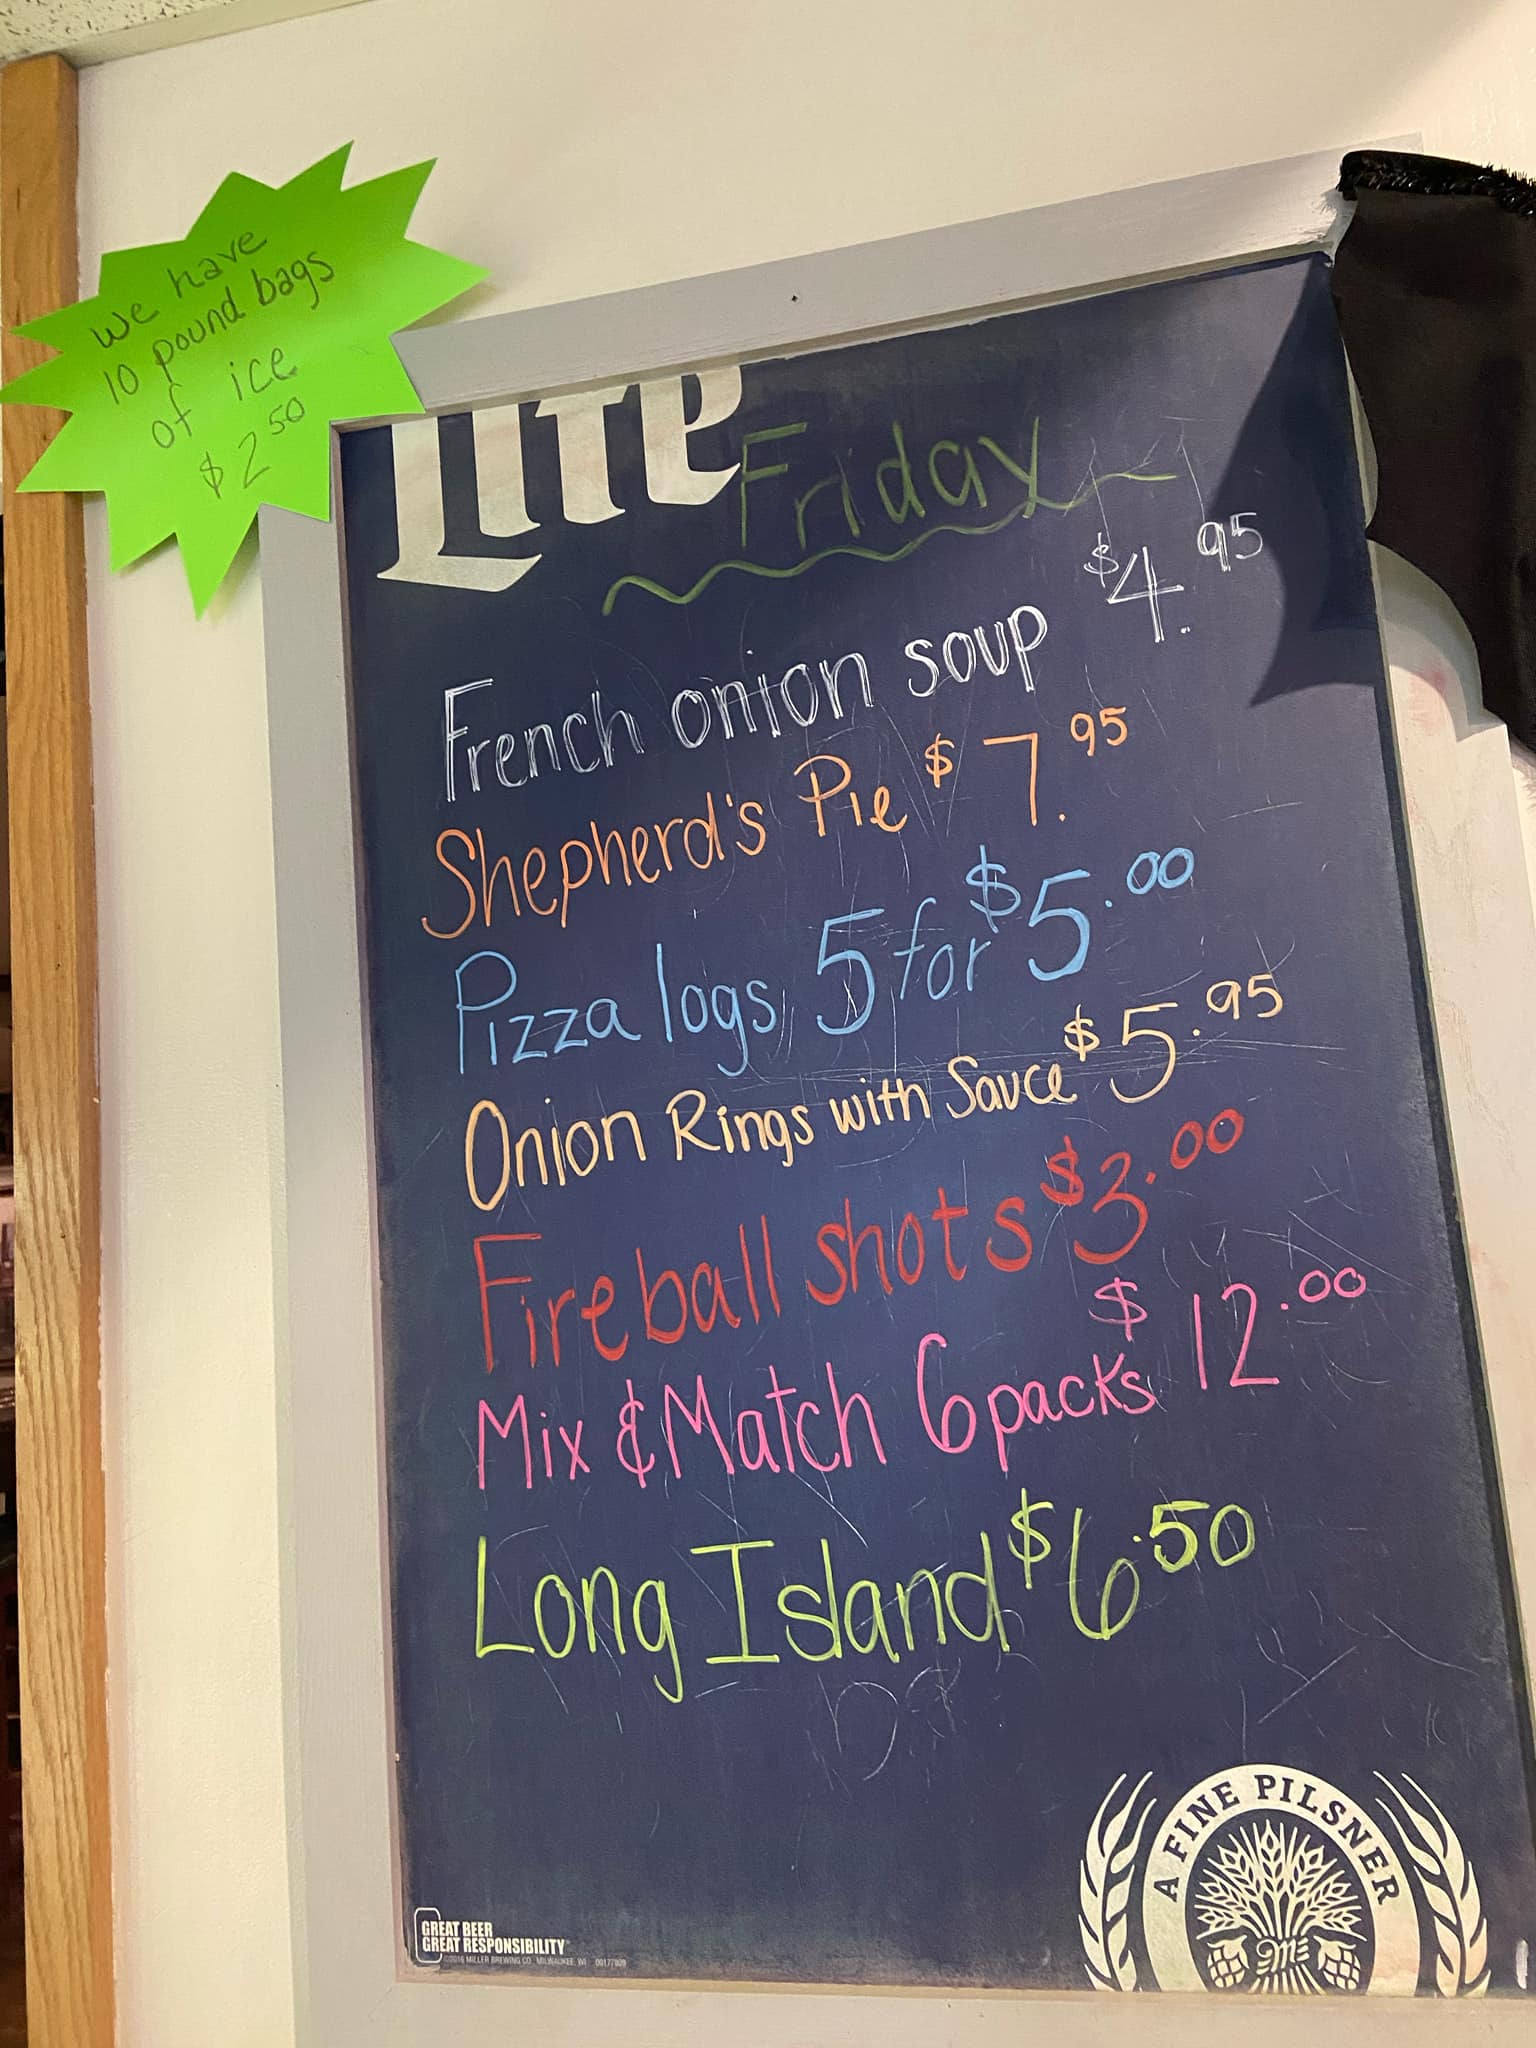 We have
10 pound bags
of ice
$2.50
Lite
Friday
French onion soup $4.95
Shepherd's Pie $7.95
Pizza logs 5 for $5.00
Onion Rings with Sauce $5.95
Fireball shots $3.00
Mix & Match 6 packs $12.00
Long Island $6.50
A FINE PILSNER
GREAT BEER
GREAT RESPONSIBILITY
©2016 MILLER BREWING CO., MILWAUKEE, WI